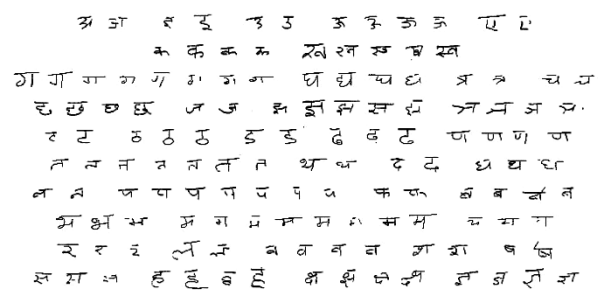 अ अ इ इ उ उ ऊ ऊ ऊ ऊ ऊ ए ए
क क क क ख ख ख ख ख
ग ग ग ग ग ग ग ग घ घ घ घ त्र त्र च च
छ छ छ छ ज ज झ झ झ झ झ
ट ट ठ ठ ठ ड ड ढ ढ ढ ण ण ण ण
त त त त त त त थ थ द द ध ध ध
न न प प प प प प प फ फ ब ब ब ब
भ भ भ म म म म म म म य य
र र र ल ल व व व व श श ष ष
स स ह ह ह ह क्ष क्ष क्ष क्ष ज्ञ ज्ञ ज्ञ ज्ञ